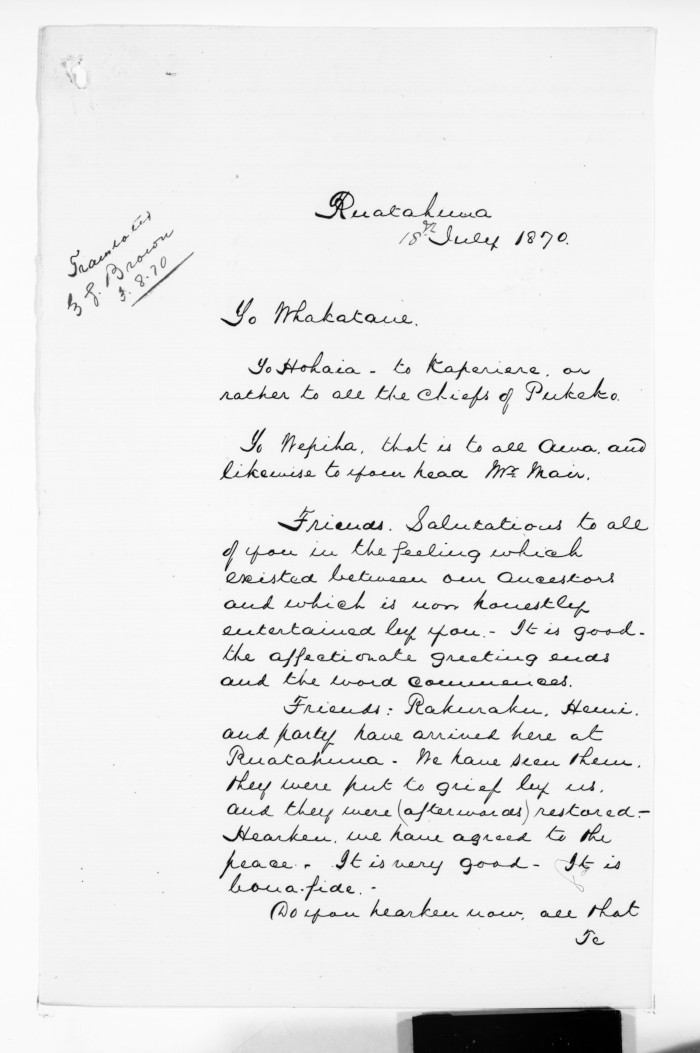 Ruatahuna
18th July 1870.
Translated
G. Brown
3.8.70
To Whakatane.
To Hohaia - to Kaperiere, or
rather to all the Chiefs of Pukeko.
To Wepiha, that is to all Awa, and
likewise to your head Mr. Mair.
Friends. Salutations to all
of you in the feeling which
existed between our Ancestors
and which is now honestly
entertained by you. - It is good -
the affectionate greeting ends
and the word commences.
Friends: Rakuraku, Hemi,
and party have arrived here at
Ruatahuna - We have seen them,
they were put to grief by us,
and they were (afterwards) restored. -
Hearken, we have agreed to the
peace. - It is very good - It is
bona-fide. -
Do you hearken now, all that
Te